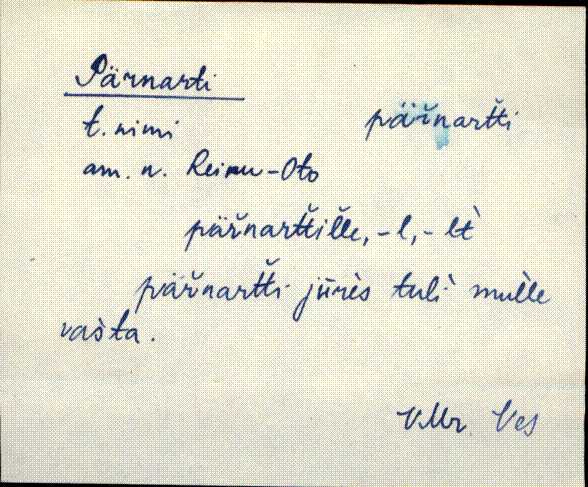 Pärnarti
t. nimi
pär̆nar̆t̆ti
am. n. Reinu-Oto
pär̆nar̆t̆til̆le, -l, -lt̀
pär̆nar̆t̆ti jūrès tulì mul̀le
vas̀ta.
V.Mr. Ves